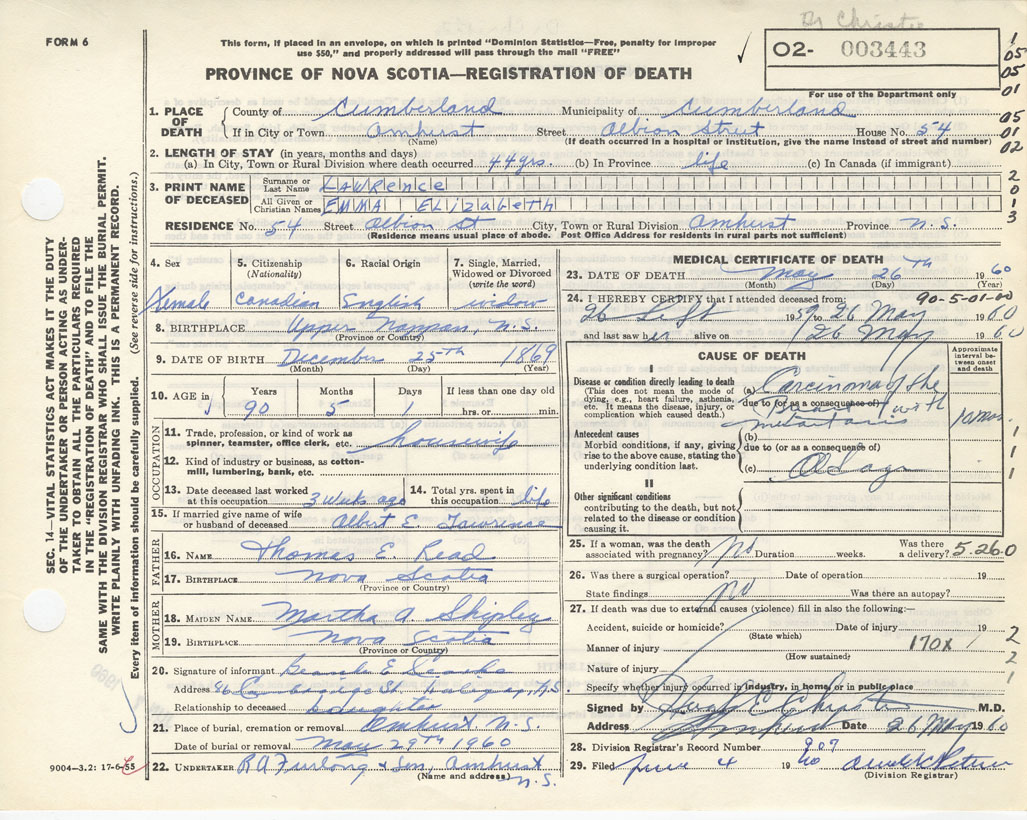 Dr Christie
FORM 6
This form, if placed in an envelope, on which is printed "Dominion Statistics—Free, penalty for improper
use $50," and properly addressed will pass through the mail "FREE"
✓
O2- 003443
For use of the Department only
PROVINCE OF NOVA SCOTIA—REGISTRATION OF DEATH
1. PLACE OF DEATH
County of Cumberland Municipality of Cumberland
If in City or Town Amherst Street Albion Street House No. 54
(Name) (If death occurred in a hospital or institution, give the name instead of street and number)
2. LENGTH OF STAY (in years, months and days)
(a) In City, Town or Rural Division where death occurred 44 yrs. (b) In Province life (c) In Canada (if immigrant)
3. PRINT NAME OF DECEASED
Surname or Last Name LAWRENCE
All Given or Christian Names EMMA ELIZABETH
RESIDENCE No. 54 Street Albion St City, Town or Rural Division Amherst Province N.S.
(Residence means usual place of abode. Post Office Address for residents in rural parts not sufficient)
4. Sex Female
5. Citizenship (Nationality) Canadian
6. Racial Origin English
7. Single, Married, Widowed or Divorced (write the word) widow
8. BIRTHPLACE Upper Nappan, N.S.
(Province or Country)
9. DATE OF BIRTH December 25TH 1869
(Month) (Day) (Year)
10. AGE in Years 90 Months 5 Days 1 If less than one day old hrs. or min.
OCCUPATION
11. Trade, profession, or kind of work as spinner, teamster, office clerk, etc. housewife
12. Kind of industry or business, as cotton-mill, lumbering, bank, etc.
13. Date deceased last worked at this occupation 3 weeks ago
14. Total yrs. spent in this occupation life
15. If married give name of wife or husband of deceased Albert E. Lawrence
FATHER
16. NAME Thomas E. Read
17. BIRTHPLACE Nova Scotia
(Province or Country)
MOTHER
18. MAIDEN NAME Martha A. Shipley
19. BIRTHPLACE Nova Scotia
(Province or Country)
20. Signature of informant
Address 96 Cambridge St. Halifax, N.S
Relationship to deceased Daughter
21. Place of burial, cremation or removal Amherst N.S.
Date of burial or removal May 29TH 1960
22. UNDERTAKER R A Furlong & Son, Amherst
(Name and address) N.S.
MEDICAL CERTIFICATE OF DEATH
23. DATE OF DEATH May 26TH 1960
(Month) (Day) (Year)
24. I HEREBY CERTIFY that I attended deceased from: 90-5-01-00
26 Sept 1959 to 26 May 1960
and last saw her alive on 26 May 1960
CAUSE OF DEATH
Approximate interval between onset and death
I
Disease or condition directly leading to death
(This does not mean the mode of dying, e.g., heart failure, asthenia, etc. It means the disease, injury, or complication which caused death.)
(a) Carcinoma of the
due to (or as a consequence of)
Breast with
10 mon.
Antecedent causes
Morbid conditions, if any, giving rise to the above cause, stating the underlying condition last.
(b)
due to (or as a consequence of)
(c) Old age
II
Other significant conditions
contributing to the death, but not related to the disease or condition causing it.
25. If a woman, was the death associated with pregnancy? No Duration weeks. Was there a delivery? 5.26.0
26. Was there a surgical operation? No Date of operation 19
State findings Was there an autopsy?
27. If death was due to external causes (violence) fill in also the following:—
Accident, suicide or homicide? Date of injury 19
(State which)
Manner of injury 170X
(How sustained)
Nature of injury
Specify whether injury occurred in industry, in home, or in public place
Signed by Christie M.D.
Address Amherst Date 26 May 1960
28. Division Registrar's Record Number 907
29. Filed June 4 1960
(Division Registrar)
SEC. 14—VITAL STATISTICS ACT MAKES IT THE DUTY
OF THE UNDERTAKER OR PERSON ACTING AS UNDER-
TAKER TO OBTAIN ALL THE PARTICULARS REQUIRED
IN THE "REGISTRATION OF DEATH" AND TO FILE THE
SAME WITH THE DIVISION REGISTRAR WHO SHALL ISSUE THE BURIAL PERMIT.
WRITE PLAINLY WITH UNFADING INK. THIS IS A PERMANENT RECORD.
Every item of information should be carefully supplied. (See reverse side for instructions.)
9004—3.2: 17-6-55
1
05
05
01
05
01
02
2
0
1
3
1
1
1
2
2
1